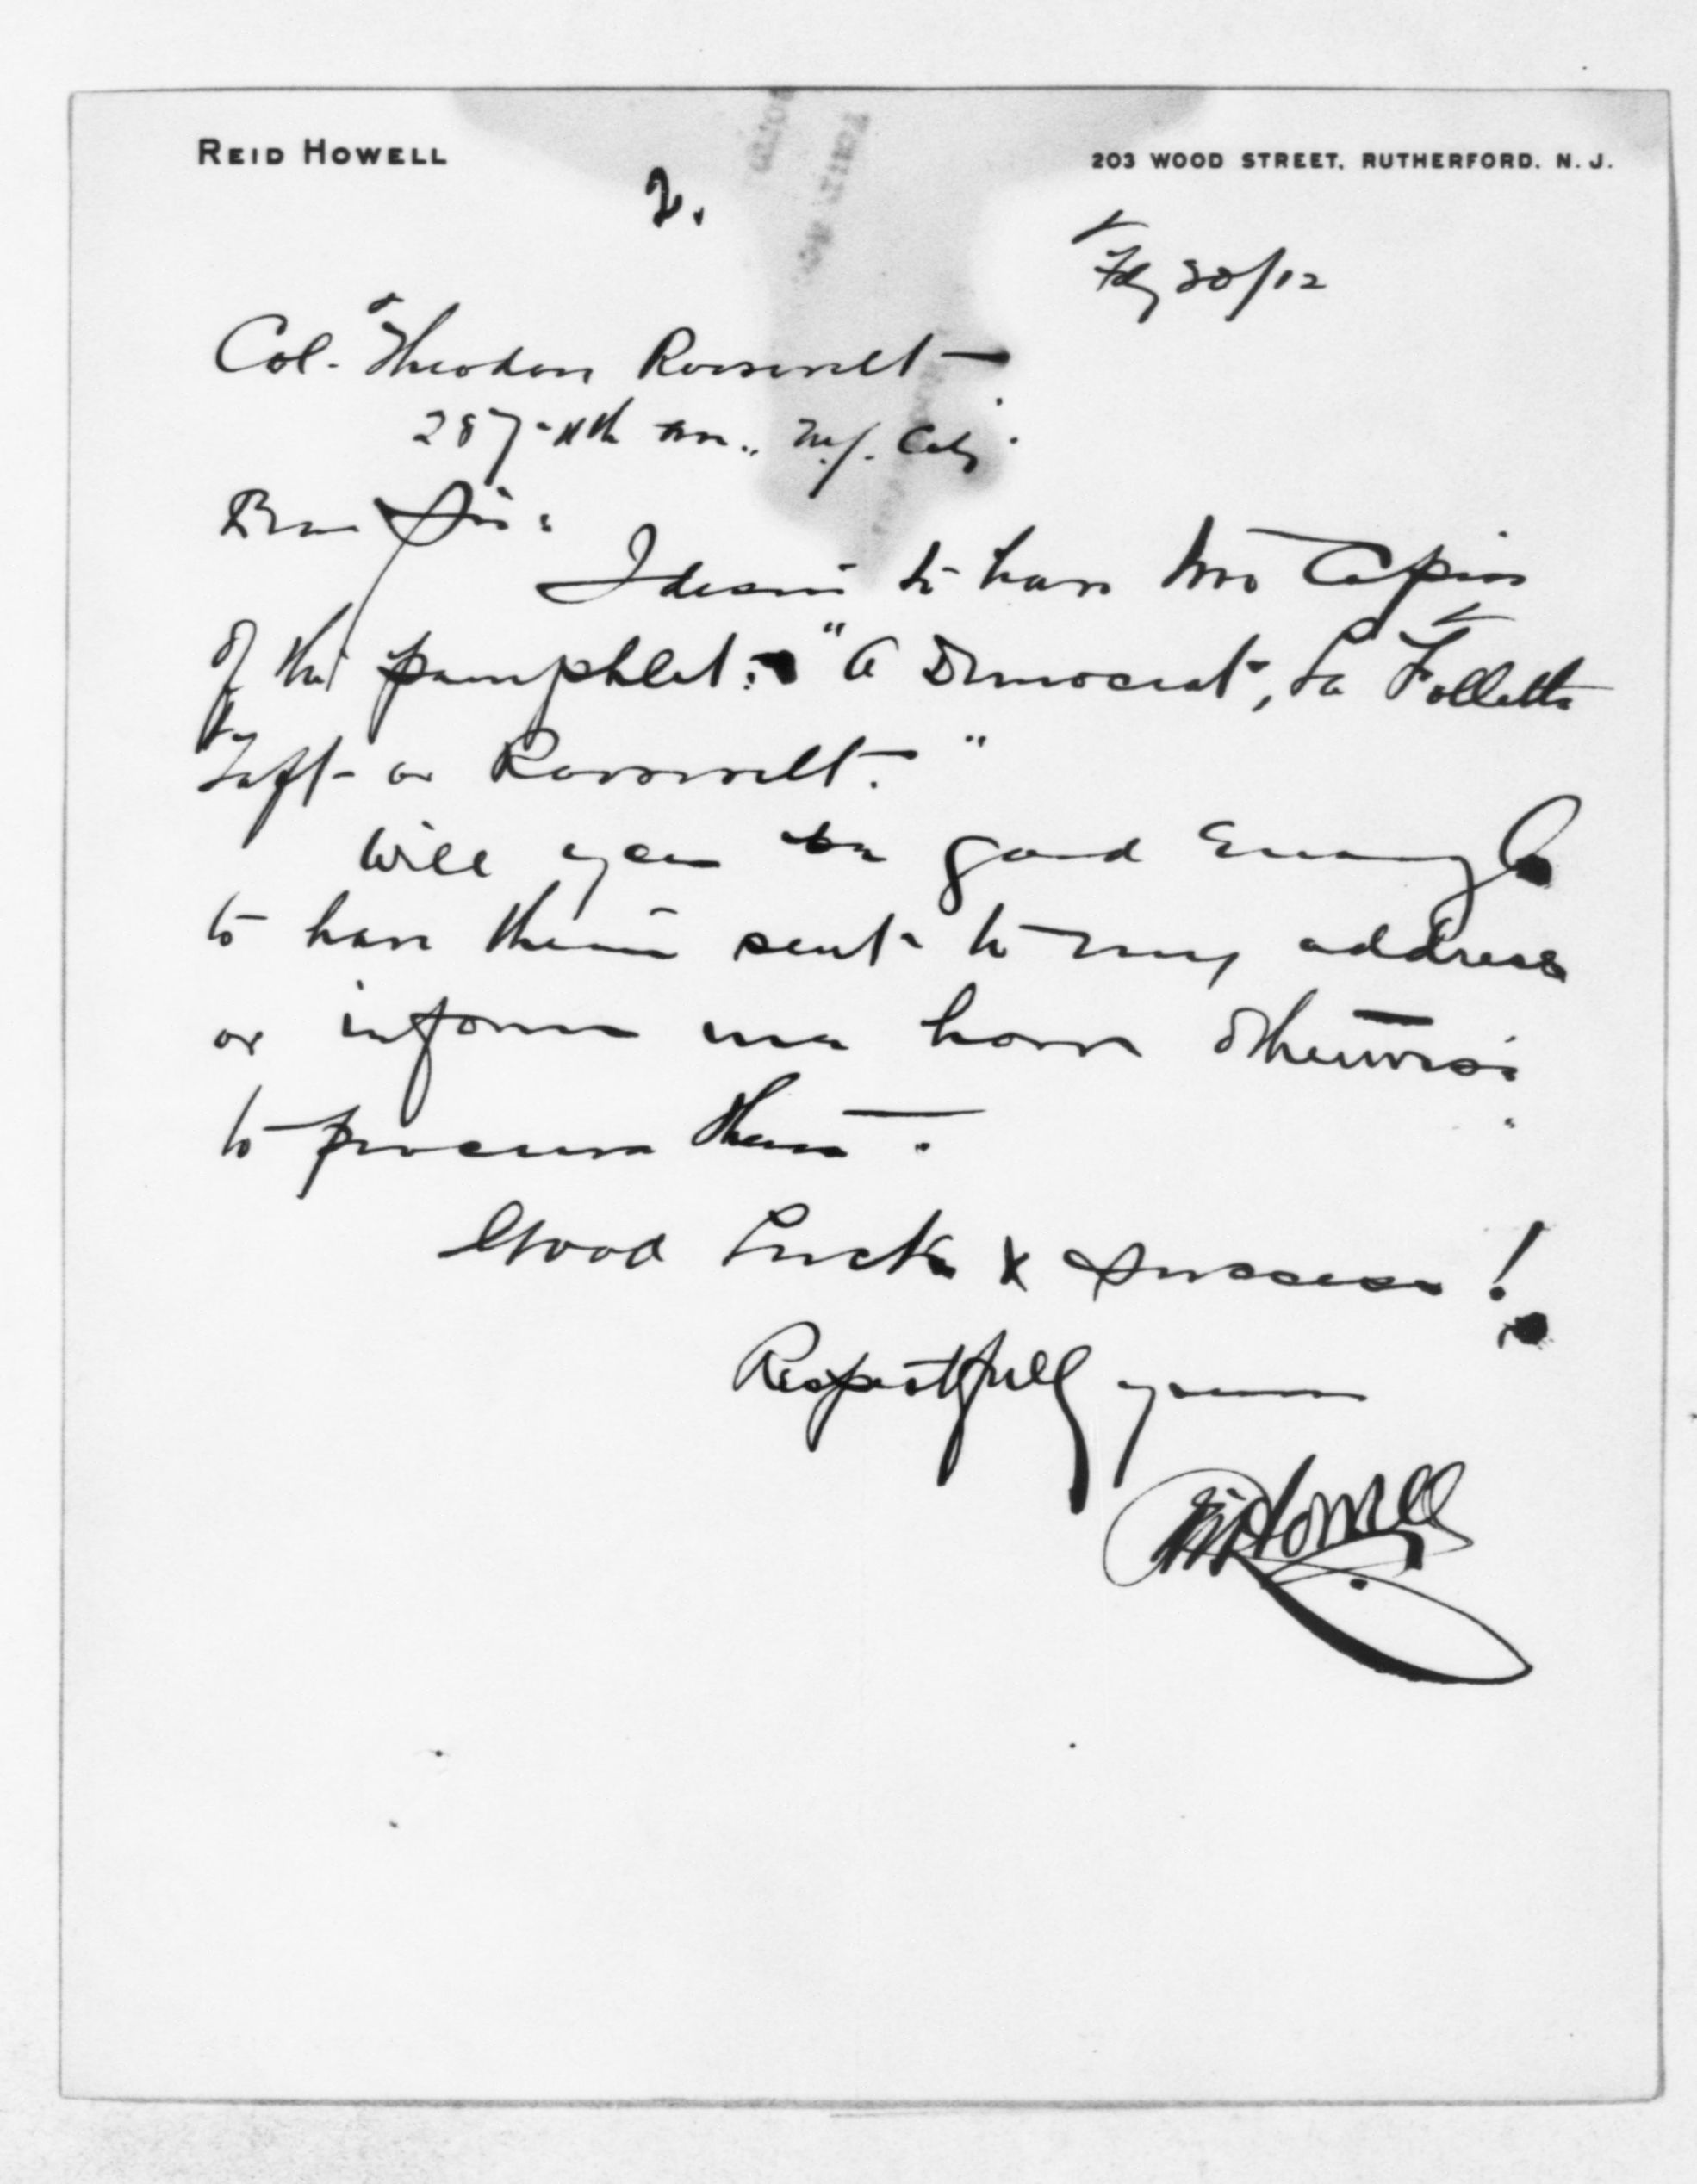 REID HOWELL
203 WOOD STREET, RUTHERFORD, N. J.
2.
Feby 20/12
Col. Theodore Roosevelt
287-4th Ave., N.Y. City.
Dear Sir:
I desire to have two Copies
of the pamphlet: "A Democrat, La Follette
Taft or Roosevelt."
Will you be good Enough
to have them sent to my address
or inform me how otherwise
to procure them.
Good Luck & Success!
Respectfully yours
Howell